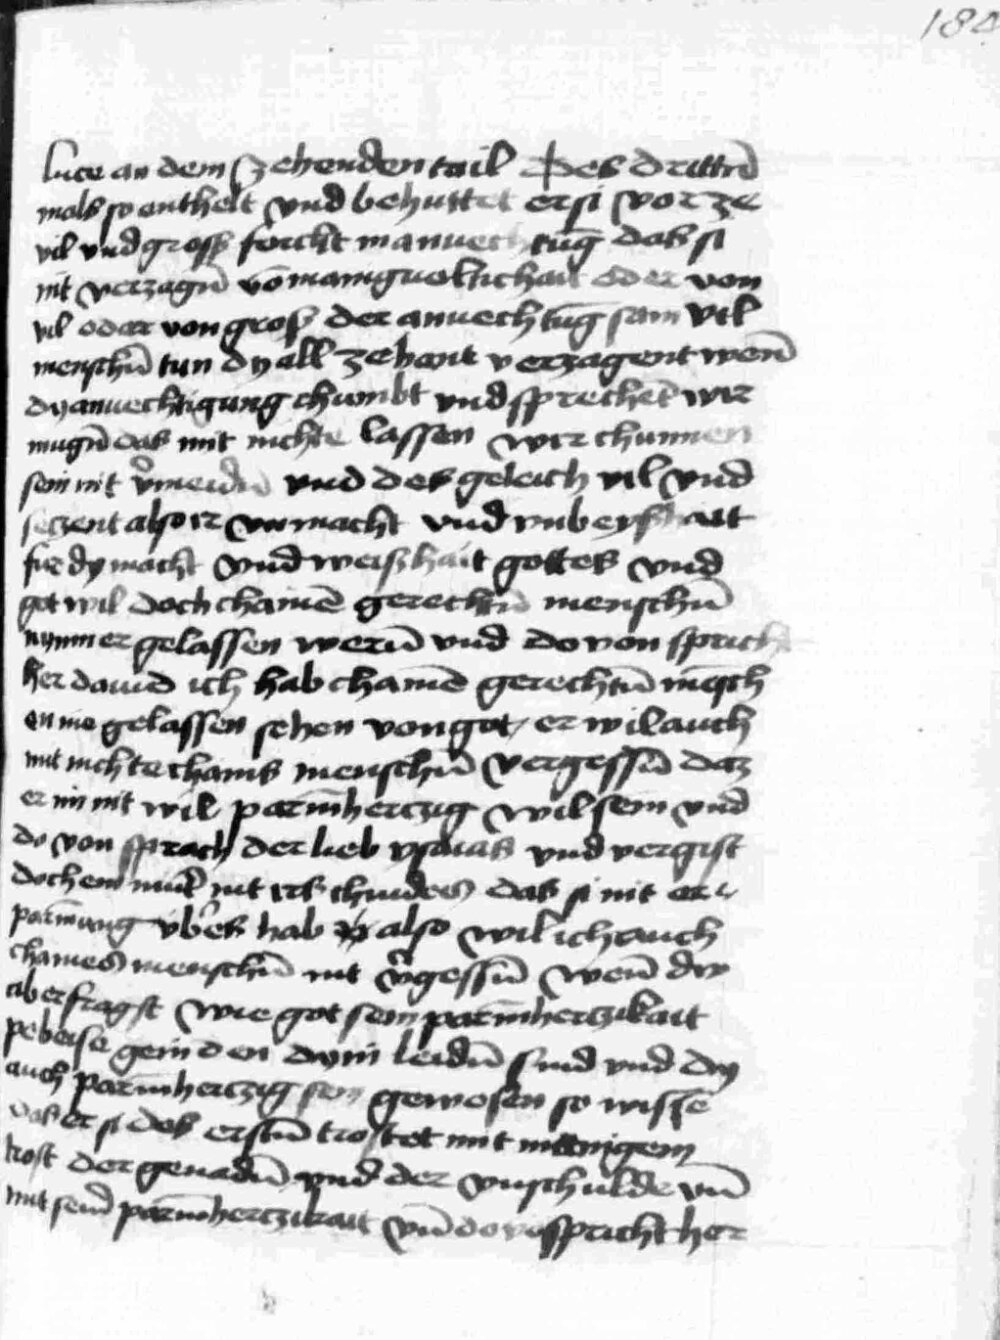 184
luce an dem zehenden tail Des drittn̄
mals so enthelt vnd behuttet er si vor ze
vil vnd gross forcht manuechtūg das si
nit verzagn̄ vō manigueltichait oder von
vil oder von gross der anuechtūg sam vil
menschn̄ tun dy all zehant verzagent wen̄
dy anuechtigung chumbt vnd sprechēt wir
mugn̄ das mit nichte lassen wir chunnen
sein nit v̄meidn̄ vnd des geleich vil vnd
seczent also ir vnmacht vnd vnbeyshait
fur dy macht vnd weishait gottes vnd
got wil doch chainē gerechtn̄ menschn̄
nymmer gelassen wern̄ vnd do von sprich
her dauid ich hab chainē gerechtn̄ mēsch
en nie gelassen sehen von got / er wil auch
mit nichte chains menschn̄ vergessn̄ daz
er im nit wil parm̄herczig wil sein vnd
do von sprach der lieb ysaias vnd vergist
doch ein mut̄ nit irs chindes das si nit er
parmung vb̄ es hab also wil ich auch
chaines menschn̄ nit v̄gessn̄ wen̄ dw
aber fragst wie got sein parm̄herczikait
pebeise gein den dy in leidn̄ sind vnd dy
auch parm̄herczig sein gewesen so wisse
das er si des erstn̄ trostet mit innigem
trost der genadn̄ vnd der vnschulde vn̄
mit seinē parm̄herczikait vn̄ do vō spricht her